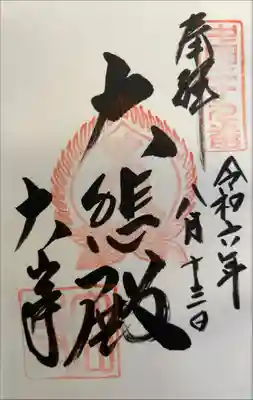 奉拝
令和六年
八月十三日
大悲殿
大